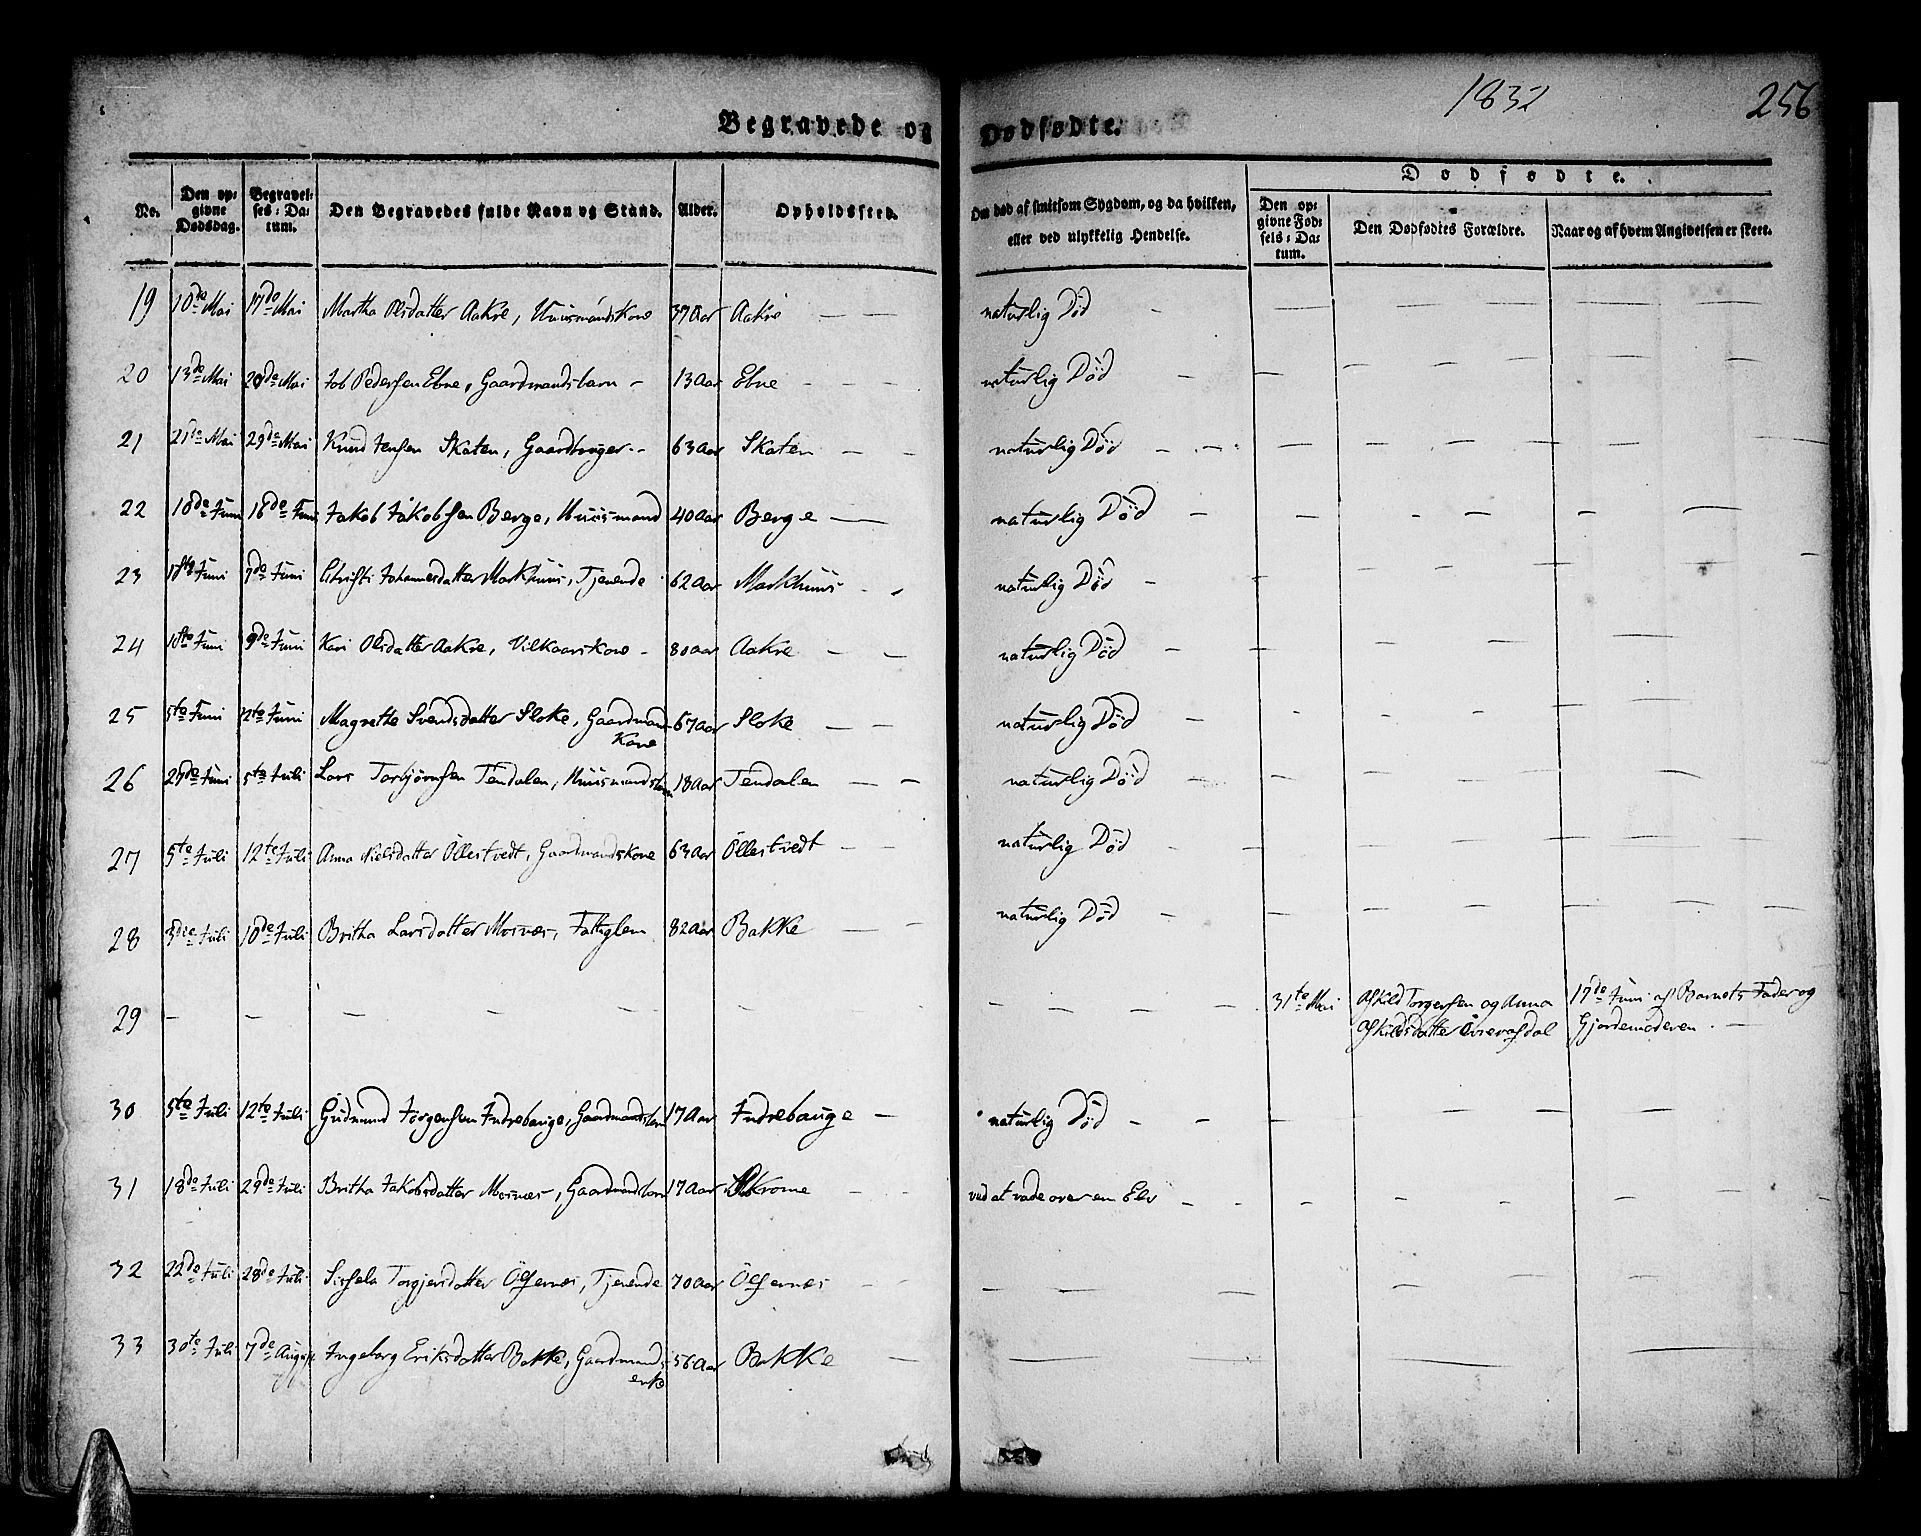 1832
256
Begravede og Dødfødte.
No.
Den opgivne Dødsdag.
Begravelses-Datum.
Den Begravedes fulde Navn og Stand.
Alder.
Opholdssted.
Om død af smitsom Sygdom, og da hvilken, eller ved ulykkelig Hendelse.
Dødfødte.
Den opgivne Fødsels-Datum.
Den Dødfødtes Forældre.
Naar og af hvem Angivelsen er skeet.
19 10de Mai 17de Mai Martha Olsdatter Aakre, Huusmandskone 37 Aar Aakre — — naturlig Død — — — — — —
20 13de Mai 20de Mai Job Pedersen Ebne, Gaardmandsbarn - 13 Aar Ebne - - - naturlig Død — — — — — —
21 21de Mai 29de Mai Knud Jensen Skaten, Gaardbruger - - 63 Aar Skaten — — naturlig Død — — — — — —
22 18de Juni Jakob Jakobsen Berge, Huusmand 40 Aar Berge — naturlig Død — — — — — —
23 Juni 7de Juni Christi Johannesdatter Markhuus, Tjenende 62 Aar Markhuus - - naturlig Død — — — — — —
24 Juni 9de Juni Kari Olsdatter Aakre, Vilkaarskone - 80 Aar Aakre — — naturlig Død — — — — —
25 5te Juni 12te Juni Magrethe Svendsdatter Sloke, Gaardmands 67 Aar Sloke — — naturlig Død — — — — — —
Kone
26 27de Juni 5te Juli Lars Torbjørnsen Tendalen, Huusmandsbarn 18 Aar Tendalen — — naturlig Død — — — — —
27 5te Juli 12te Juli Anna Nielsdatter Öllestvedt, Gaardmandskone 63 Aar Öllestvedt — — naturlig Död — — — — — —
28 3die Juli 10de Juli Britha Larsdatter Mosnæs, Fattiglem 82 Aar Bakke — — naturlig Död — — — — — —
29 — — — — — — — — — — — 31te Mai Askild Torgersen og Anna 17de Juni af Barnets Fader og
Askildsdatter Gjordemoderen. —
30 5te Juli 12te Juli Gudmund Jørgensen Indrebauge, Gaardmandsbarn 17 Aar Indrebauge — naturlig Død — — — — — —
31 18de Juli 29de Juli Britha Jakobsdatter Mosnæs, Gaardmandsbarn 17 Aar — — ved at vade over en Elv — — — — — — —
32 22de Juli 28de Juli Sissela Torgjersdatter Ölfernæs, Tjenende 70 Aar Ölfernæs — — — — — — — —
33 30te Juli 7de August Ingeborg Eriksdatter Bakke, Gaardmands 56 Aar Bakke — — — —
enke